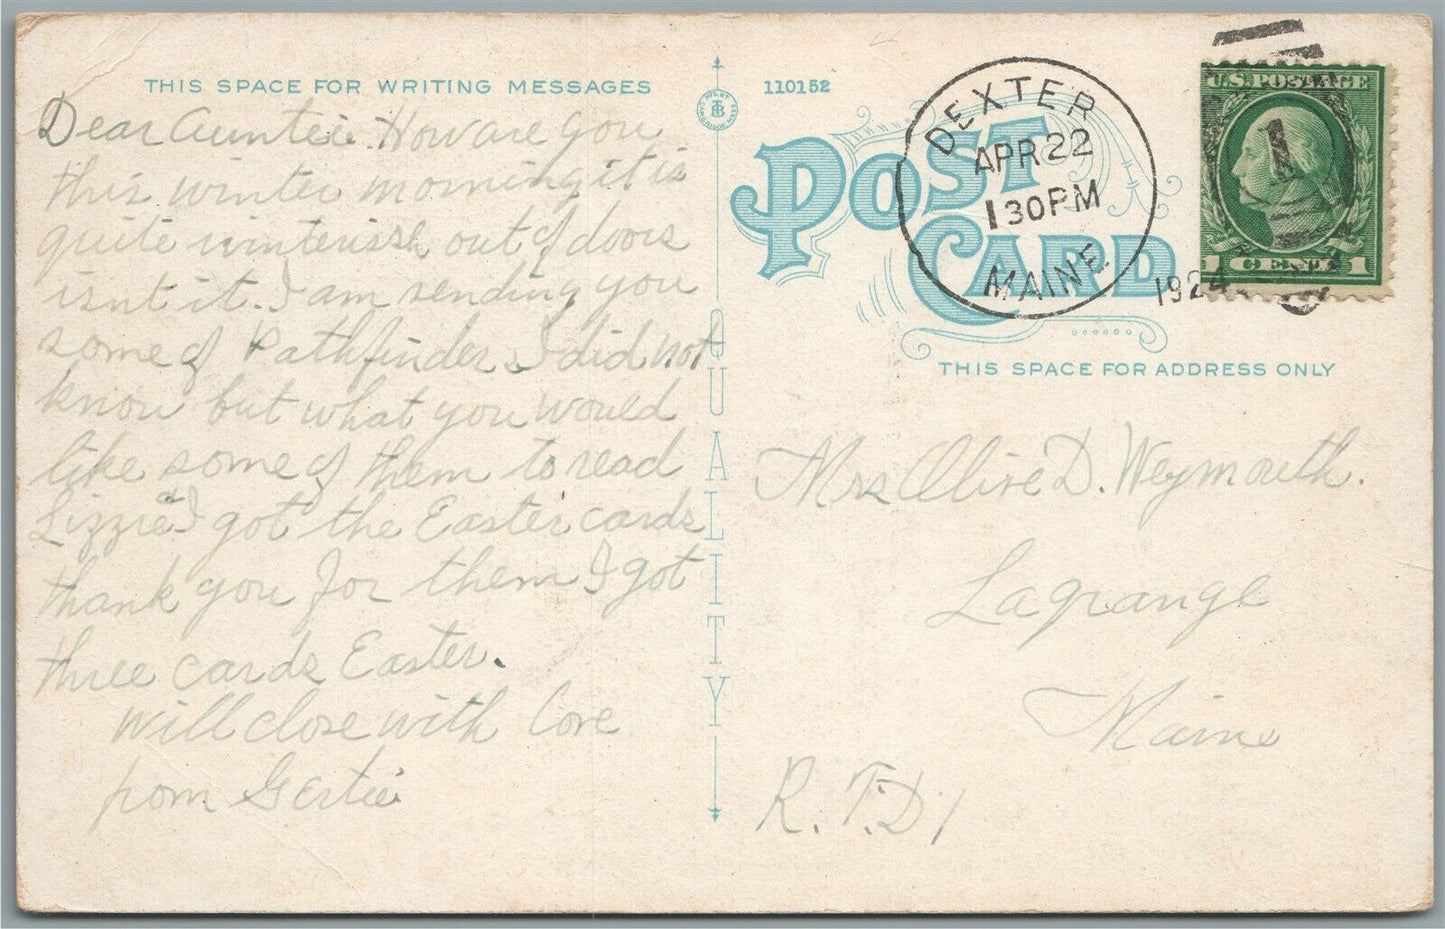 THIS SPACE FOR WRITING MESSAGES
Dear Auntie. How are you
this winter morning it is
quite winterish out of doors
isnt it. I am sending you
some of Pathfinder. I did not
know but what you would
like some of them to read
Lizzie & I got the Easter cards
thank you for them I got
three cards Easter.
Will close with love
from Gertie
QUALITY
110152
POST CARD
DEXTER
APR 22
1 30 PM
MAINE
1924
U.S. POSTAGE
1 CENT 1
1
THIS SPACE FOR ADDRESS ONLY
Mrs Olive D. Weymouth.
Lagrange
Maine
R. F. D 1